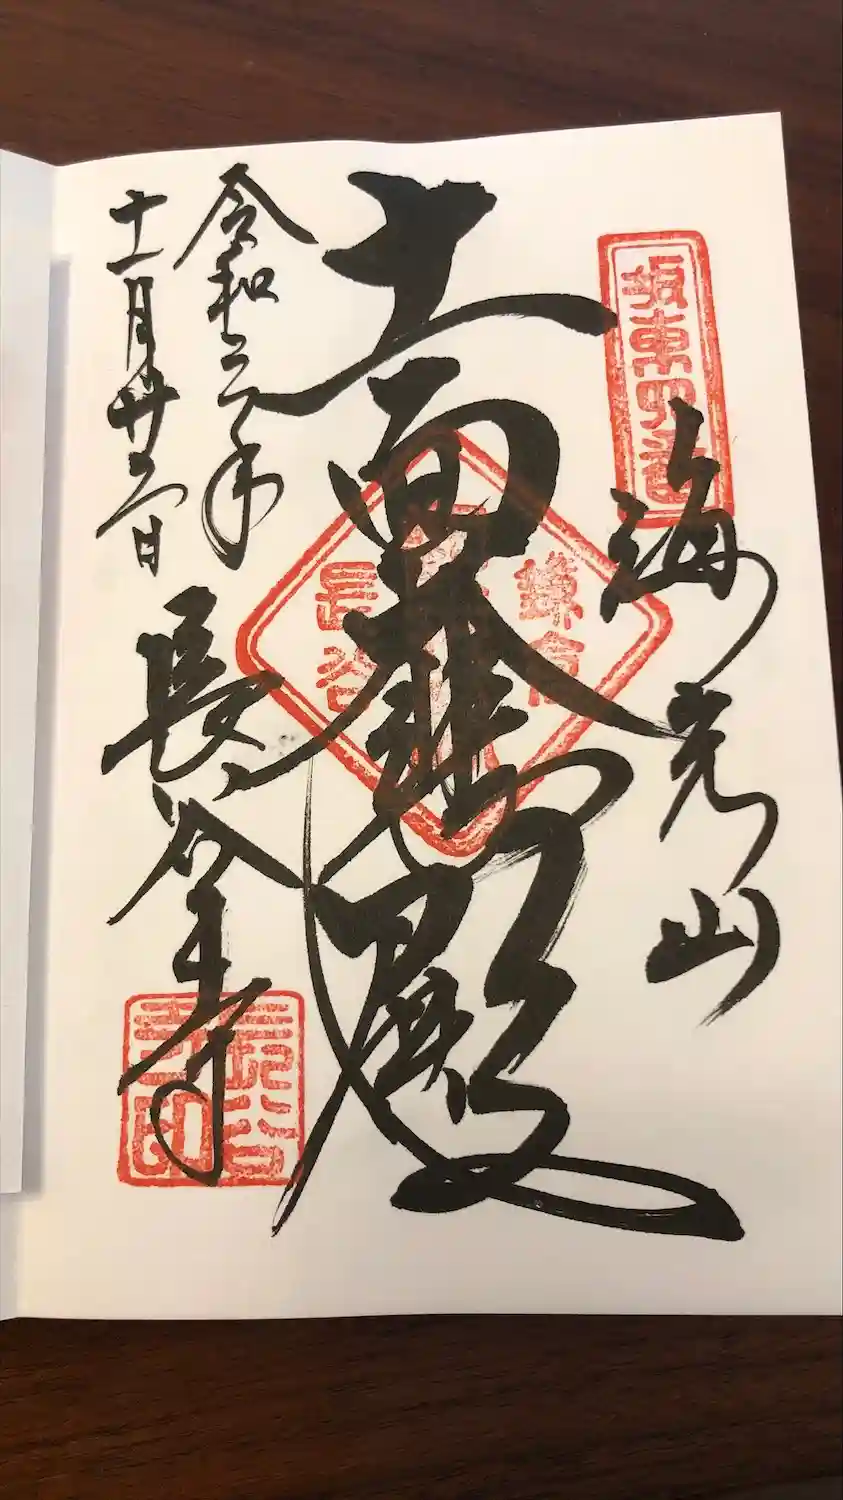 坂東四番
海光山
十一面大悲殿
鎌倉
長谷
令和二年
十一月廿二日
長谷寺
長谷寺印